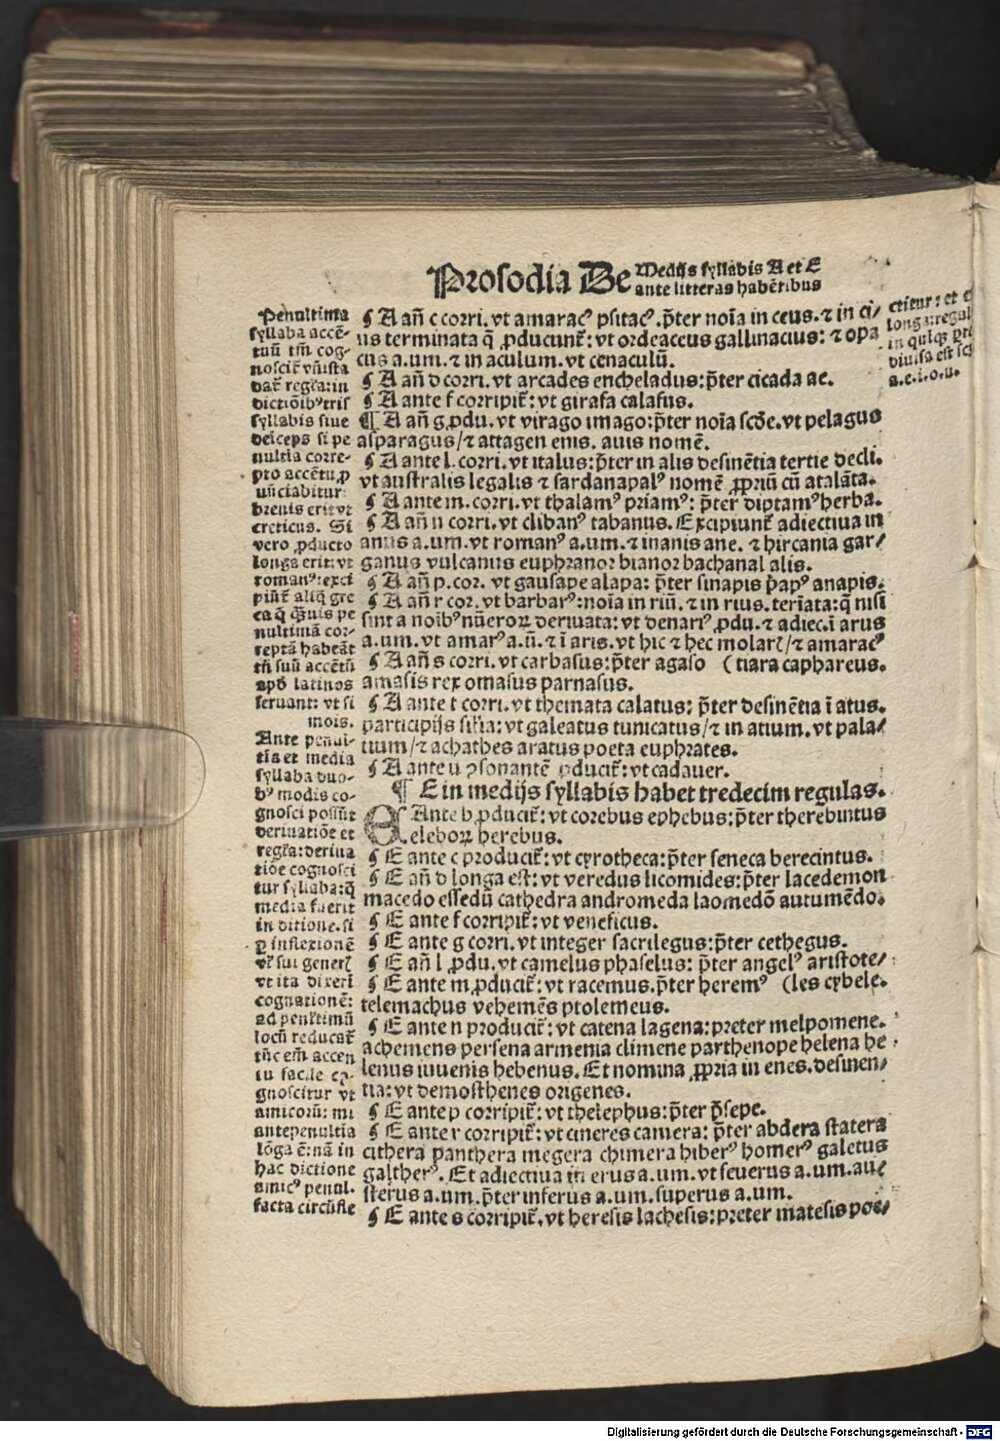 Prosodia De Medijs syllabis A et E
ante litteras habētibus
Penultima
syllaba accē-
tuū tm̄ cog-
noscit᷑ vn̄ista
dat᷑ regl̄a: in
dictiōibꝰ tris
syllabis siue
deiceps si pe
nultia corre-
pto accētu ꝓ
nūciabitur
breuis erit vt
creticus. Si
vero ꝓducto
longa erit: vt
romanꝰ: exci
piūt᷑ aliq̄ gre
ca q̄ q̄ȝuis pe
nultimā cor-
reptā habeāt
tn̄ suū accētū
apd̄ latinos
seruant: vt si
mois.
Ante penul-
tīa et media
syllaba duo-
bꝰ modis co-
gnosci possūt
deriuatiōe et
regl̄a: deriua
tiōe cognosci
tur syllaba: q̄
media fuerit
in ditione. si
ꝑ inflexionē
vl̄ sui generꝭ
vt ita dixerī
cognationē:
ad penl̄timū
locū reducat᷑
tūc em̄ accen
tu facile co-
gnoscitur vt
amicorū: mi
antepenultia
lōga ē: nā in
hac dictione
amicꝰ penul.
facta circūfle
¶ A an̄ c corri. vt amaracꝰ psitacꝰ. p̄ter noīa in ceus. ⁊ in ci/
us terminata q̄ ꝓducunt᷑: vt ordeaceus gallinacius: ⁊ opa
cus a.um. ⁊ in aculum. vt cenaculū.
¶ A an̄ d corri. vt arcades encheladus: p̄ter cicada ae.
¶ A ante f corripit᷑: vt girafa calafus.
¶ A an̄ g ꝓdu. vt virago imago: p̄ter noīa scd̄e. vt pelagus
asparagus/ ⁊ attagen enis. auis nomē.
¶ A ante l. corri. vt italus: p̄ter in alis desinētia tertie decli.
vt australis legalis ⁊ sardanapalꝰ nomē ꝓpriū cū atalāta.
¶ A ante m. corri. vt thalamꝰ priamꝰ: p̄ter diptamꝰ herba.
¶ A an̄ n corri. vt clibanꝰ tabanus. Excipiunt᷑ adiectiua in
anus a.um. vt romanꝰ a.um. ⁊ inanis ane. ⁊ hircania gar/
ganus vulcanus euphranor bianor bachanal alis.
¶ A an̄ p. cor. vt gausape alapa: p̄ter sinapis p̄apꝰ anapis.
¶ A an̄ r cor. vt barbarꝰ: noīa in riū. ⁊ in rius. teriāta: q̄ nisi
sint a noībꝰ nūeroꝝ deriuata: vt denariꝰ ꝓdu. ⁊ adiec. ī arus
a.um. vt amarꝰ a.ū. ⁊ ī aris. vt hic ⁊ hec molarꝭ/ ⁊ amaracꝰ
¶ A an̄ s corri. vt carbasus: p̄ter agaso (tiara caphareus.
amasis rex omasus parnasus.
¶ A ante t corri. vt themata calatus: p̄ter desinētia ī atus.
participijs sīlia: vt galeatus tunicatus/ ⁊ in atium. vt pala/
tium/ ⁊ achathes aratus poeta euphrates.
¶ A ante u ↄsonantē ꝓducit᷑: vt cadauer.
¶ E in medijs syllabis habet tredecim regulas.
E Ante b ꝓducit᷑: vt corebus ephebus: p̄ter therebintus
eleboꝝ herebus.
¶ E ante c producit᷑: vt cyrotheca: p̄ter seneca berecintus.
¶ E an̄ d longa est: vt veredus licomides: p̄ter lacedemon
macedo essedū cathedra andromeda laomedō autumēdo.
¶ E ante f corripit᷑: vt veneficus.
¶ E ante g corri. vt integer sacrilegus: p̄ter cethegus.
¶ E an̄ l ꝓdu. vt camelus phaselus: p̄ter angelꝰ aristote/
¶ E ante m ꝓducit᷑: vt racemus. p̄ter heremꝰ (les cybele.
telemachus vehemēs ptolemeus.
¶ E ante n producit᷑: vt catena lagena: preter melpomene.
achemens persena armenia climene parthenope helena he
lenus iuuenis hebenus. Et nomina ꝓpria in enes. desinen/
tia: vt demosthenes origenes.
¶ E ante p corripit᷑: vt thelephus: p̄ter p̄sepe.
¶ E ante r corripit᷑: vt cineres camera: p̄ter abdera statera
cithera panthera megera chimera hiberꝰ homerꝰ galetus
galtherꝰ. Et adiectiua in erus a.um. vt seuerus a.um. au/
sterus a.um. p̄ter inferus a.um. superus a.um.
¶ E ante s corripit᷑. vt heresis lachesis: preter matesis poe/
ctitur: et
longa: regul
in qulqȝ
diuisa est sci
a.e.i.o.u.
Digitalisierung gefördert durch die Deutsche Forschungsgemeinschaft - DFG